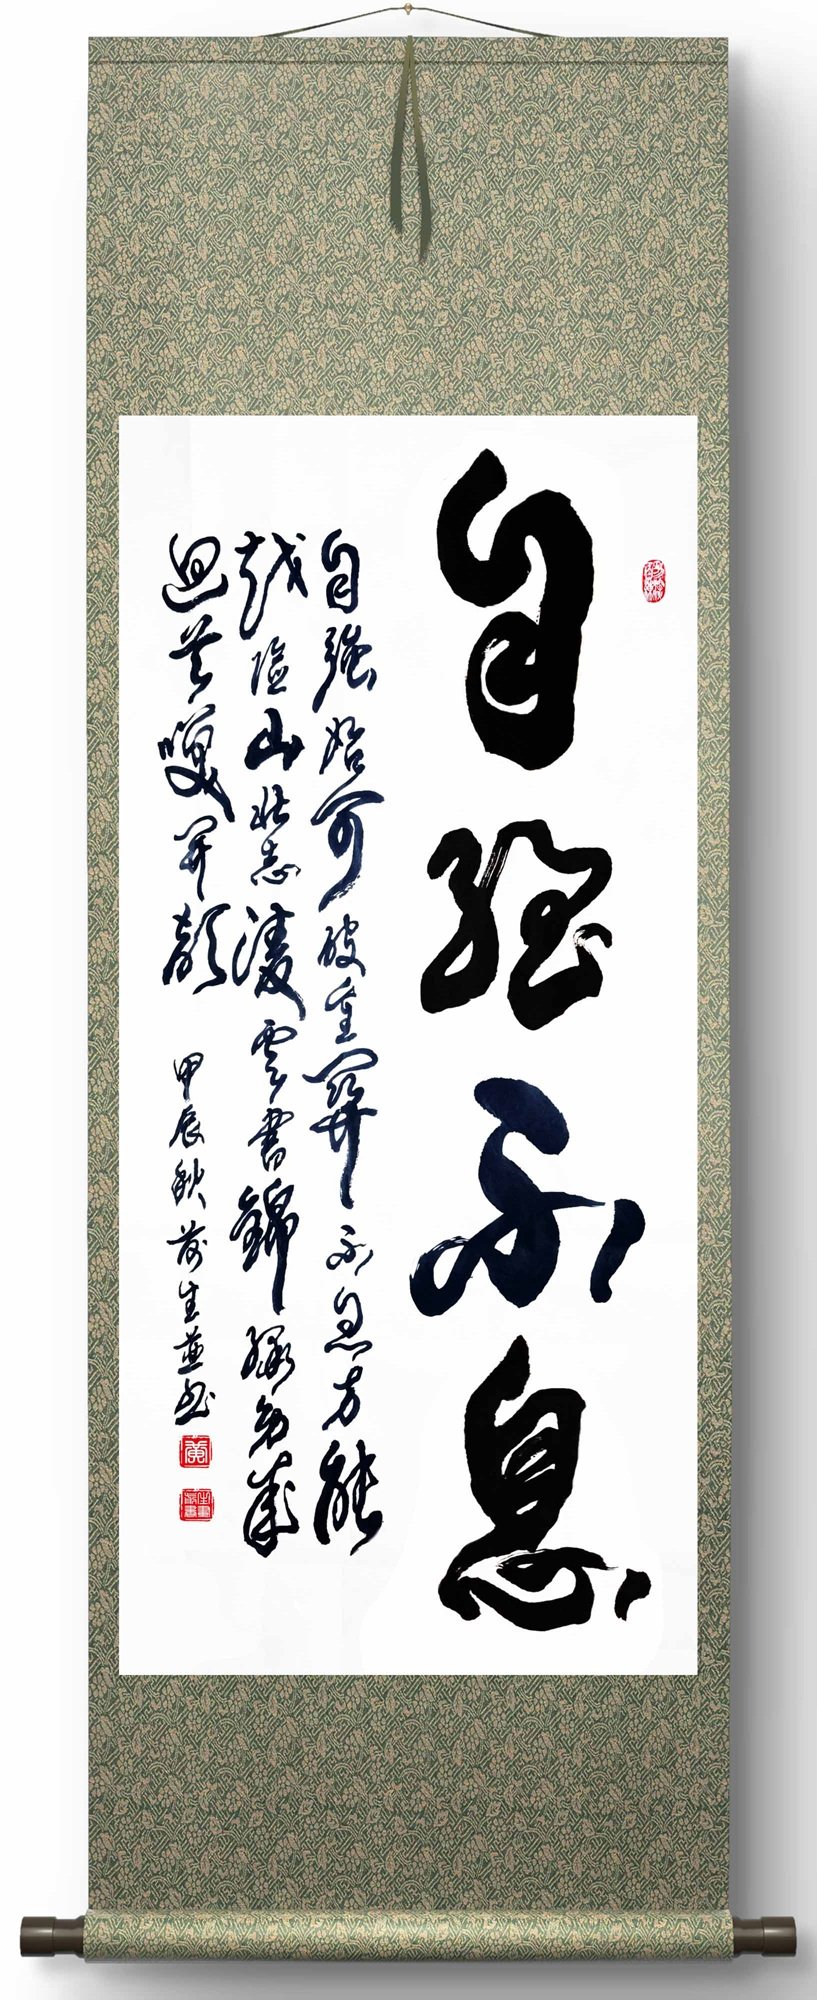 自強不息
自強始可破重關不息方能
越險山壯志凌雲書錦繡功成
迴首笑開顏
甲辰秋 生並書
黄